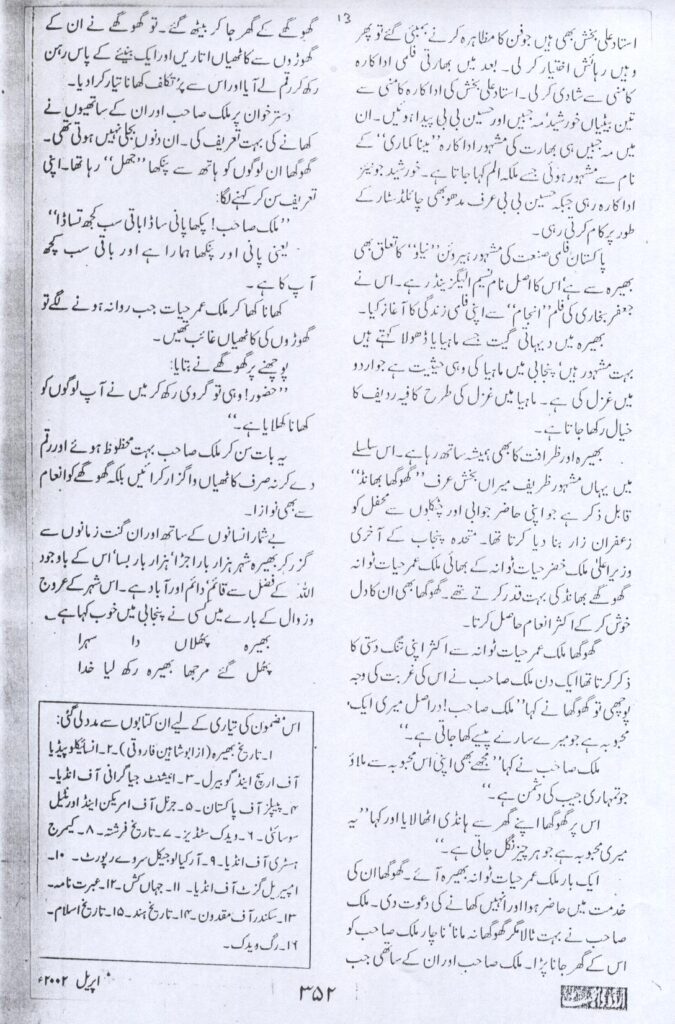 13
استاد علی بخش بھی ہیں جو فن کا مظاہرہ کرنے بمبئی گئے تو پھر
وہیں رہائش اختیار کر لی۔ بعد میں بھارتی فلمی اداکارہ
کامنی سے شادی کر لی۔ استاد علی بخش کی اداکارہ کامنی سے
تین بیٹیاں خورشید‘ مہ جبیں اور حسین بی بی پیدا ہوئیں۔ ان
میں مہ جبیں ہی بھارت کی مشہور اداکارہ ’’مینا کماری‘‘ کے
نام سے مشہور ہوئی جسے ملکہ الم کہا جاتا ہے۔ خورشید جونیئر
اداکارہ رہی جبکہ حسین بی بی عرف مدھو بھی چائلڈ سٹار کے
طور پر کام کرتی رہی۔
پاکستان فلمی صنعت کی مشہور ہیروئن ’’نیلو‘‘ کا تعلق بھی
بھیرہ سے ہے‘ اس کا اصل نام نسیم الیگزینڈر ہے۔ اس نے
جعفر بخاری کی فلم ’’انجام‘‘ سے اپنی فلمی زندگی کا آغاز کیا۔
بھیرہ میں دیہاتی گیت جسے ماہیا یا ڈھولا کہتے ہیں
بہت مشہور ہیں‘ پنجابی میں ماہیا کی وہی حیثیت ہے جو اردو
میں غزل کی ہے۔ ماہیا میں غزل کی طرح کافیہ ردیف کا
خیال رکھا جاتا ہے۔
بھیرہ اور ظرافت کا بھی ہمیشہ ساتھ رہا ہے۔ اس سلسلے
میں یہاں مشہور ظریف میراں بخش عرف ’’گھوگھا بھانڈ‘‘
قابل ذکر ہے جو اپنی حاضر جوابی اور چٹکلوں سے محفل کو
زعفران زار بنا دیا کرتا تھا۔ متحدہ پنجاب کے آخری
وزیراعلیٰ ملک خضر حیات ٹوانہ کے بھائی ملک عمر حیات ٹوانہ
گھوگھے بھانڈ کی بہت قدر کرتے تھے۔ گھوگھا بھی ان کا دل
خوش کر کے اکثر انعام حاصل کرتا۔
گھوگھا ملک عمر حیات ٹوانہ سے اکثر اپنی تنگ دستی کا
ذکر کرتا تھا ایک دن ملک صاحب نے اس کی غربت کی وجہ
پوچھی تو گھوگھا نے کہا ’’ملک صاحب! دراصل میری ایک
محبوبہ ہے جو میرے سارے پیسے کھا جاتی ہے۔‘‘
ملک صاحب نے کہا ’’مجھے بھی اپنی اس محبوبہ سے ملاؤ
جو تمہاری جیب کی دشمن ہے۔‘‘
اس پر گھوگھا اپنے گھر سے ہانڈی اٹھا لایا اور کہا ’’یہ
میری محبوبہ ہے جو ہر چیز نگل جاتی ہے۔‘‘
ایک بار ملک عمر حیات ٹوانہ بھیرہ آئے۔ گھوگھا ان کی
خدمت میں حاضر ہوا اور انہیں کھانے کی دعوت دی۔ ملک
صاحب نے بہت ٹالا مگر گھوگھا نہ مانا‘ ناچار ملک صاحب کو
اس کے گھر جانا پڑا۔ ملک صاحب اور ان کے ساتھی جب
گھوگھے کے گھر جا کر بیٹھ گئے۔ تو گھوگھے نے ان کے
گھوڑوں سے کاٹھیاں اتاریں اور ایک بنیئے کے پاس رہن
رکھ کر رقم لے آیا اور اس سے پر تکلف کھانا تیار کرا دیا۔
دستر خوان پر ملک صاحب اور ان کے ساتھیوں نے
کھانے کی بہت تعریف کی۔ ان دنوں بجلی نہیں ہوتی تھی۔
گھوگھا ان لوگوں کو ہاتھ سے پنکھا ’’جھل‘‘ رہا تھا۔ اپنی
تعریف سن کر کہنے لگا:
’’ملک صاحب! پکھا پانی ساڈا باقی سب کجھ تساڈا‘‘
یعنی پانی اور پنکھا ہمارا ہے اور باقی سب کچھ
آپ کا ہے۔
کھانا کھا کر ملک عمر حیات جب روانہ ہونے لگے تو
گھوڑوں کی کاٹھیاں غائب تھیں۔
پوچھنے پر گھوگھے نے بتایا:
’’حضور! وہی تو گروی رکھ کر میں نے آپ لوگوں کو
کھانا کھلایا ہے۔‘‘
یہ بات سن کر ملک صاحب بہت محظوظ ہوئے اور رقم
دے کر نہ صرف کاٹھیاں واگزار کرائیں بلکہ گھوگھے کو انعام
سے بھی نوازا۔
بے شمار انسانوں کے ساتھ اور ان گنت زمانوں سے
گزر کر بھیرہ شہر ہزار بار اجڑا‘ ہزار بار بسا‘ اس کے باوجود
اللہ کے فضل سے قائم‘ دائم اور آباد ہے۔ اس شہر کے عروج
و زوال کے بارے میں کسی نے پنجابی میں خوب کہا ہے۔
بھیرہ پھلاں دا سہرا
پھل گئے مرجھا بھیرہ رکھ لیا خدا
اس مضمون کی تیاری کے لیے ان کتابوں سے مدد لی گئی:
۱۔ تاریخ بھیرہ (از ابو شاہین فاروقی)۔ ۲۔ انسائیکلوپیڈیا
آف اریج اینڈ گوبیرل۔ ۳۔ اینشنٹ جیاگرافی آف انڈیا۔
۴۔ پیپلز آف پاکستان۔ ۵۔ جرنل آف امریکن اینڈ اورنٹیل
سوسائٹی۔ ۶۔ ویدک سٹڈیز۔ ۷۔ تاریخ فرشتہ۔ ۸۔ کیمرج
ہسٹری آف انڈیا۔ ۹۔ آرکیالوجیکل سروے رپورٹ۔ ۱۰۔
امپیریل گزٹ آف انڈیا۔ ۱۱۔ جہاں کش۔ ۱۲۔ عبرت نامہ۔
۱۳۔ سکندر آف مقدون۔ ۱۴۔ تاریخ ہند۔ ۱۵۔ تاریخ اسلام۔
۱۶۔ رگ ویدک۔
۳۵۲
اپریل ۲۰۰۲ء